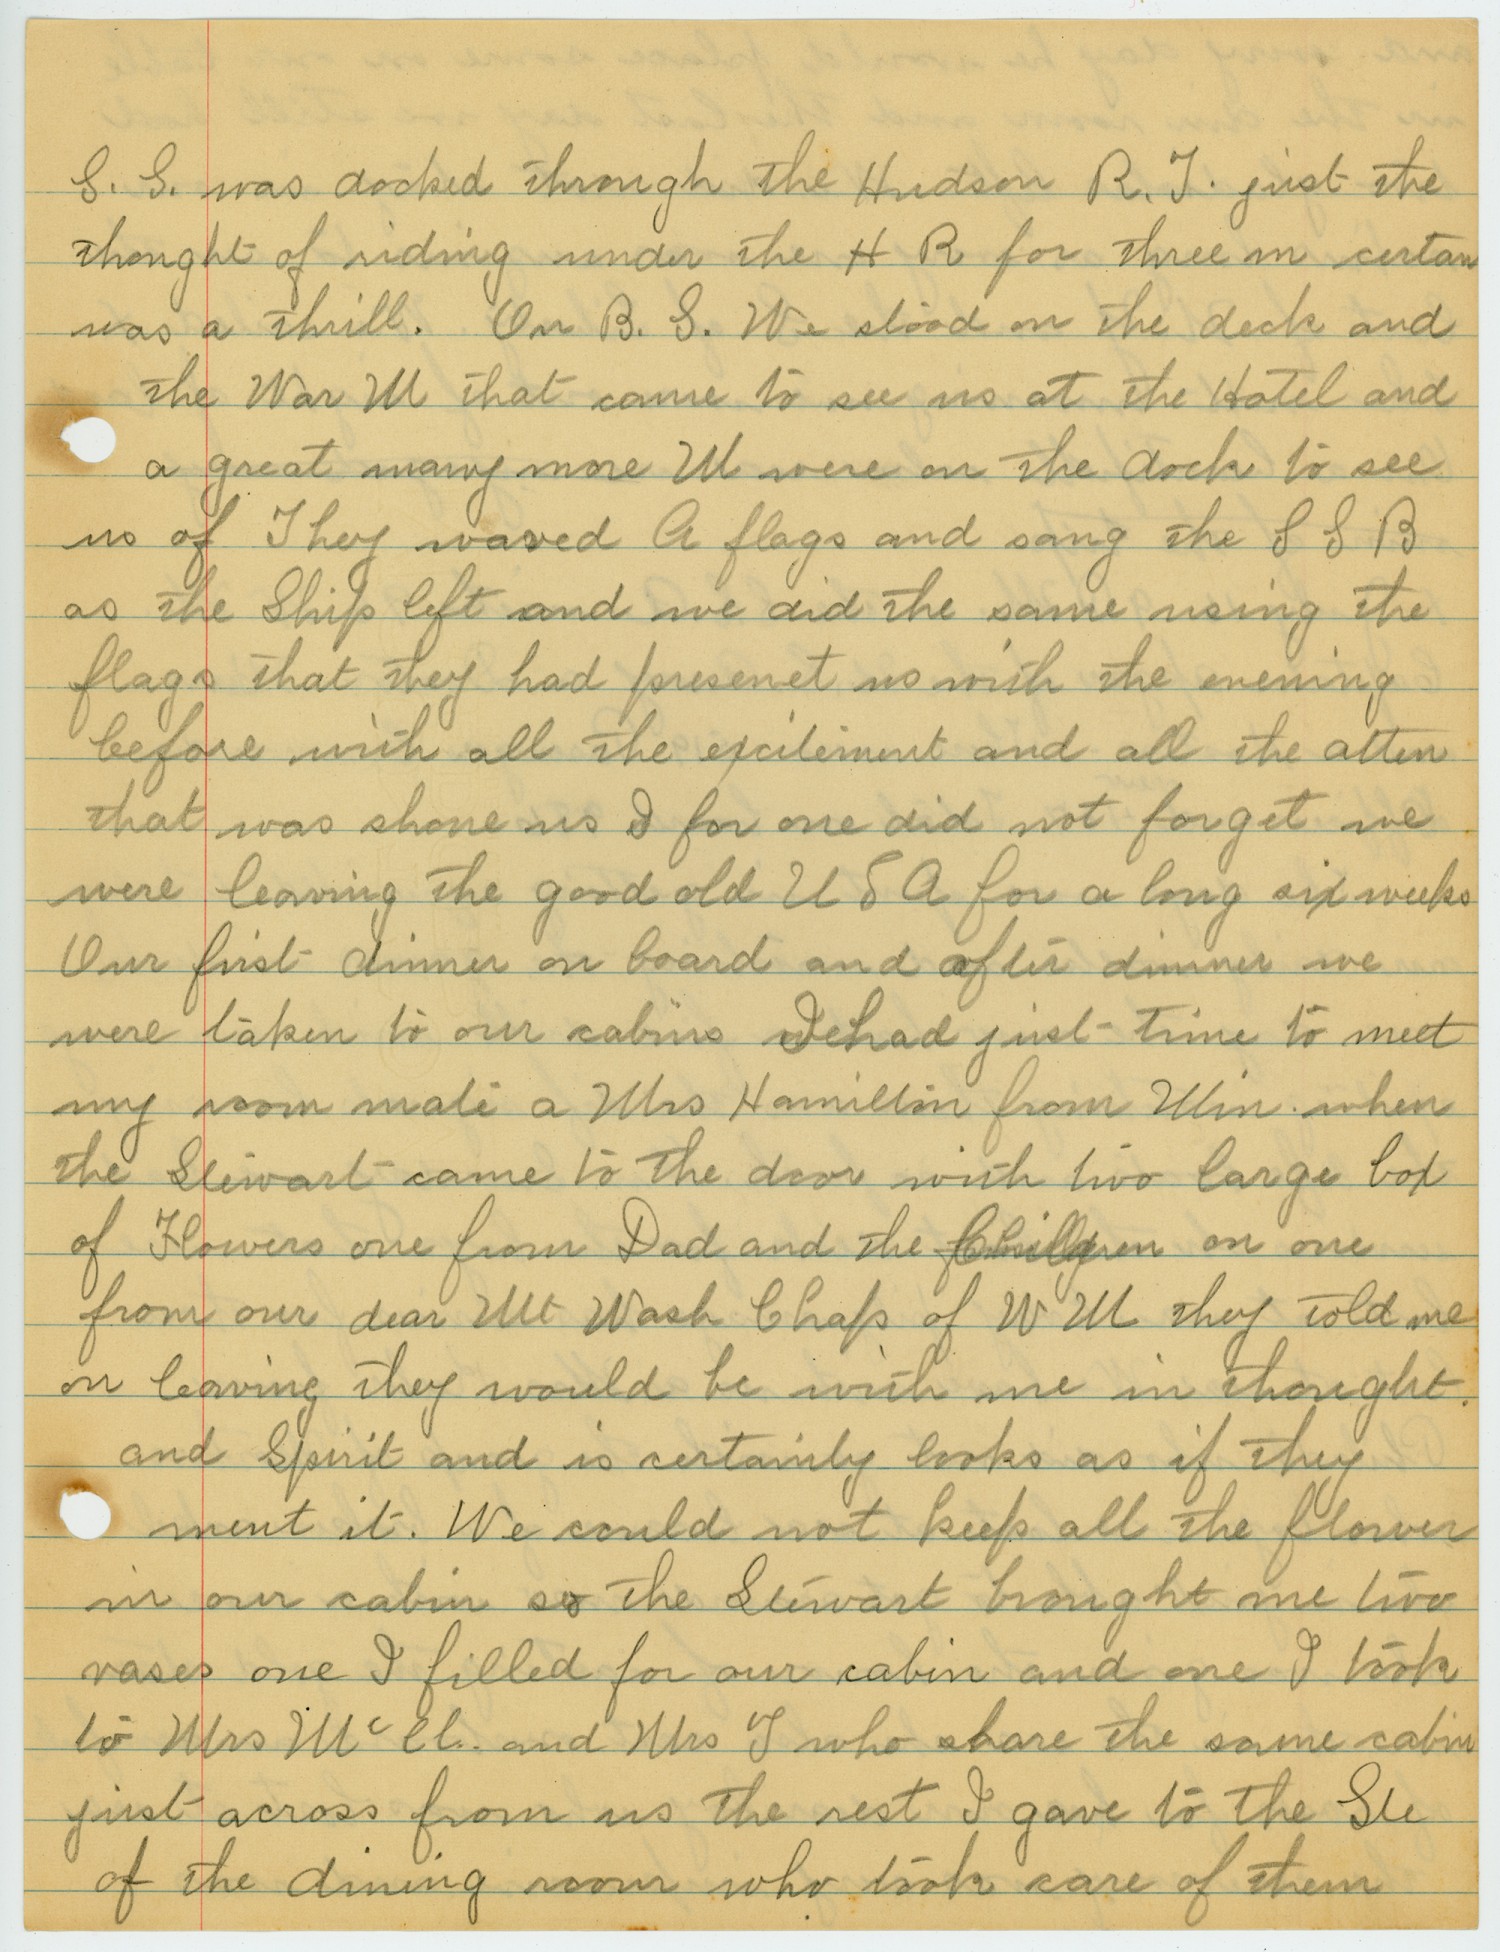 S. S. was docked through the Hudson R. T. just the
thought of riding under the H R for three m certan
was a thrill. On B. S. We stood on the deck and
the War M that came to see us at the Hotel and
a great many more M were on the dock to see
us of They waved A flags and sang the S S B
as the Ship left and we did the same using the
flags that they had presenet us with the evening
before with all the excitement and all the atten
that was shone us I for one did not forget we
were leaving the good old U S A for a long six weeks
Our first dinner on board and after dinner we
were taken to our cabins had just time to meet
my room mate a Mrs Hamilton from Min. when
the Stewart came to the door with two large box
of Flowers one from Dad and the Children on one
from our dear Mt Wash Chap of W M they told me
on leaving they would be with me in thought.
and Spirit and is certainly looks as if they
ment it. We could not keep all the flower
in our cabin so the Stewart brought me two
vases one I filled for our cabin and one I took
to Mrs Mc Cl.. and Mrs T who share the same cabin
just across from us the rest I gave to the Ste
of the dining room who took care of them